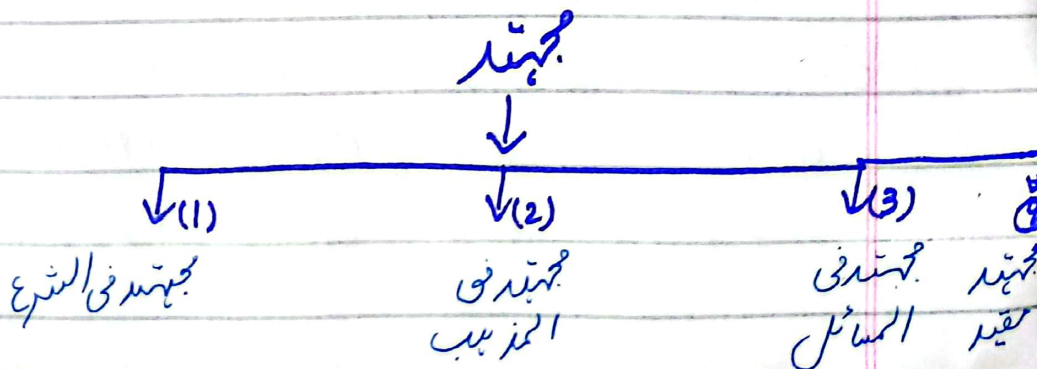 مجتہد
(1) (2) (3)
مجتہد فی الشرع
مجتہد فی المذہب
مجتہد فی المسائل
مجتہد مقید